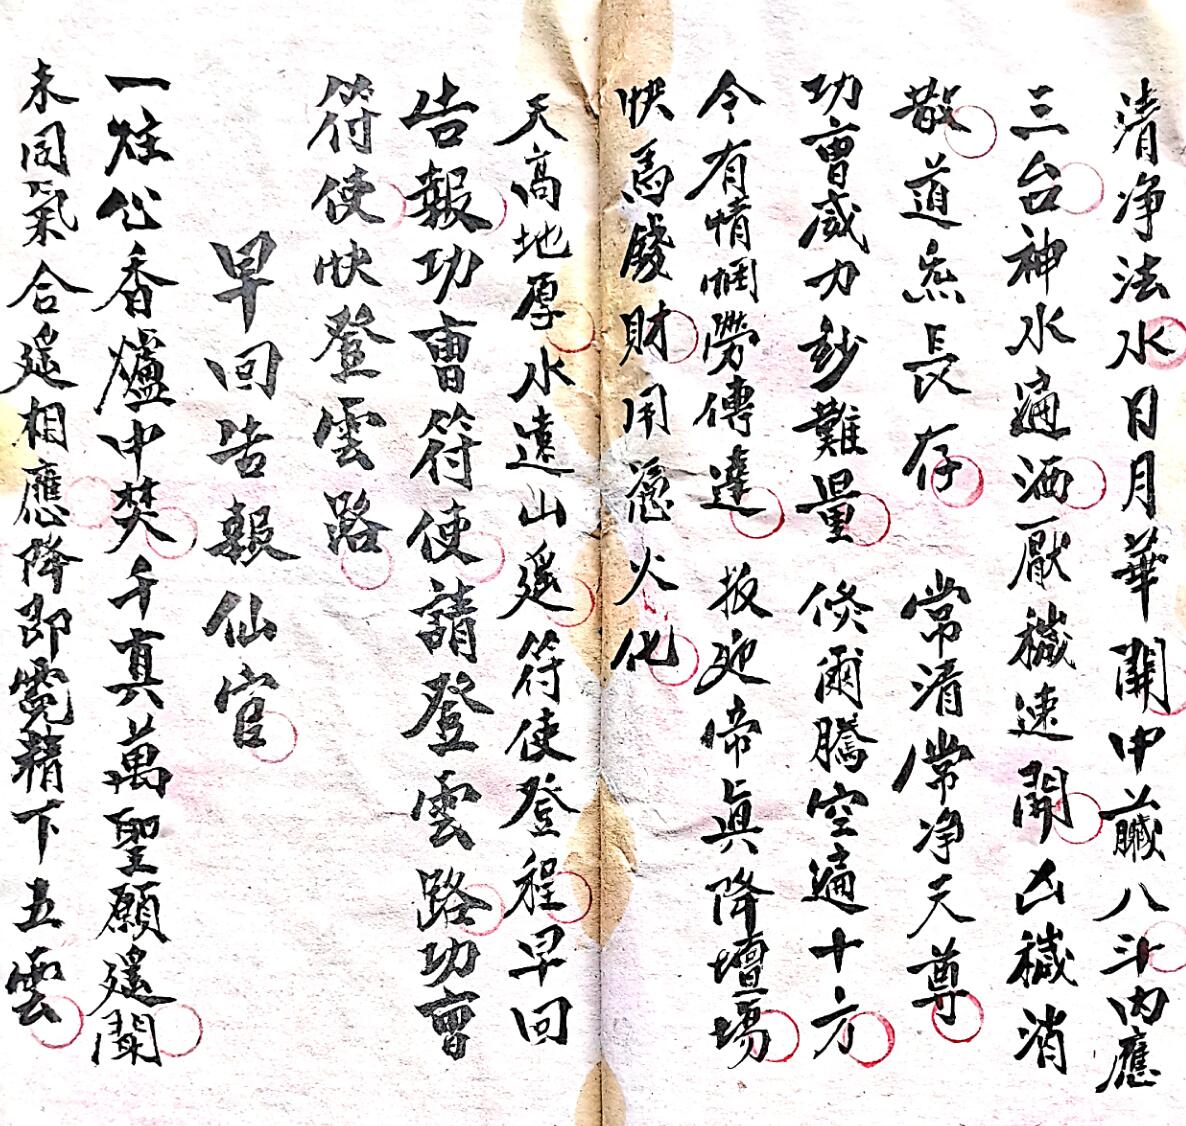 清净法水日月華開中藏八斗內應
三台神水遍洒厭穢速開凶穢消
散道炁長存 常清常净天尊
功曹威力妙難量 倏爾騰空遍十方
今有情悃勞傳達 扳迎帝真降壇場
快馬錢財用憑火化
天高地厚水遠山遙符使登程早回
告報功曹符使請登雲路功曹
符使快登雲路
早回告報仙官
一炷心香爐中焚千真萬聖願遙聞
未同氣合遙相應降即鸞精下五雲